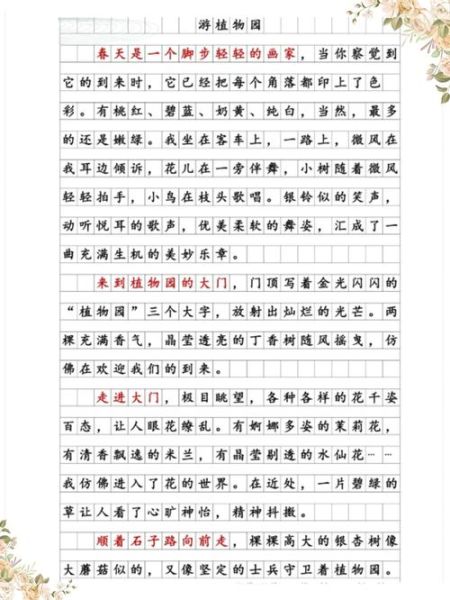 游植物园
春天是一个脚步轻轻的画家，当你察觉到
它的到来时，它已经把每个角落都印上了色
彩。有桃红、碧蓝、奶黄、纯白，当然，最多
的还是嫩绿。我坐在客车上，一路上，微风在
我耳边倾诉，花儿在一旁伴舞，小树随着微风
轻轻拍手，小鸟在枝头歌唱。银铃似的笑声，
动听悦耳的歌声，优美柔软的舞姿，汇成了一
曲充满生机的美妙乐章。
来到植物园的大门，门顶写着金光闪闪的
“植物园”三个大字，放射出灿烂的光芒。两
棵充满香气，晶莹透亮的丁香树随风摇曳，仿
佛在欢迎我们的到来。
走进大门，极目眺望，各种各样的花千姿
百态，让人眼花缭乱。有婀娜多姿的茉莉花，
有清香飘逸的米兰，有晶莹剔透的水仙花……
我仿佛进入了花的世界。在近处，一片碧绿的
草让人看了心旷神怡，精神抖擞。
顺着石子路向前走，棵棵高大的银杏树像
大蘑菇似的，又像坚定的士兵守卫着植物园。